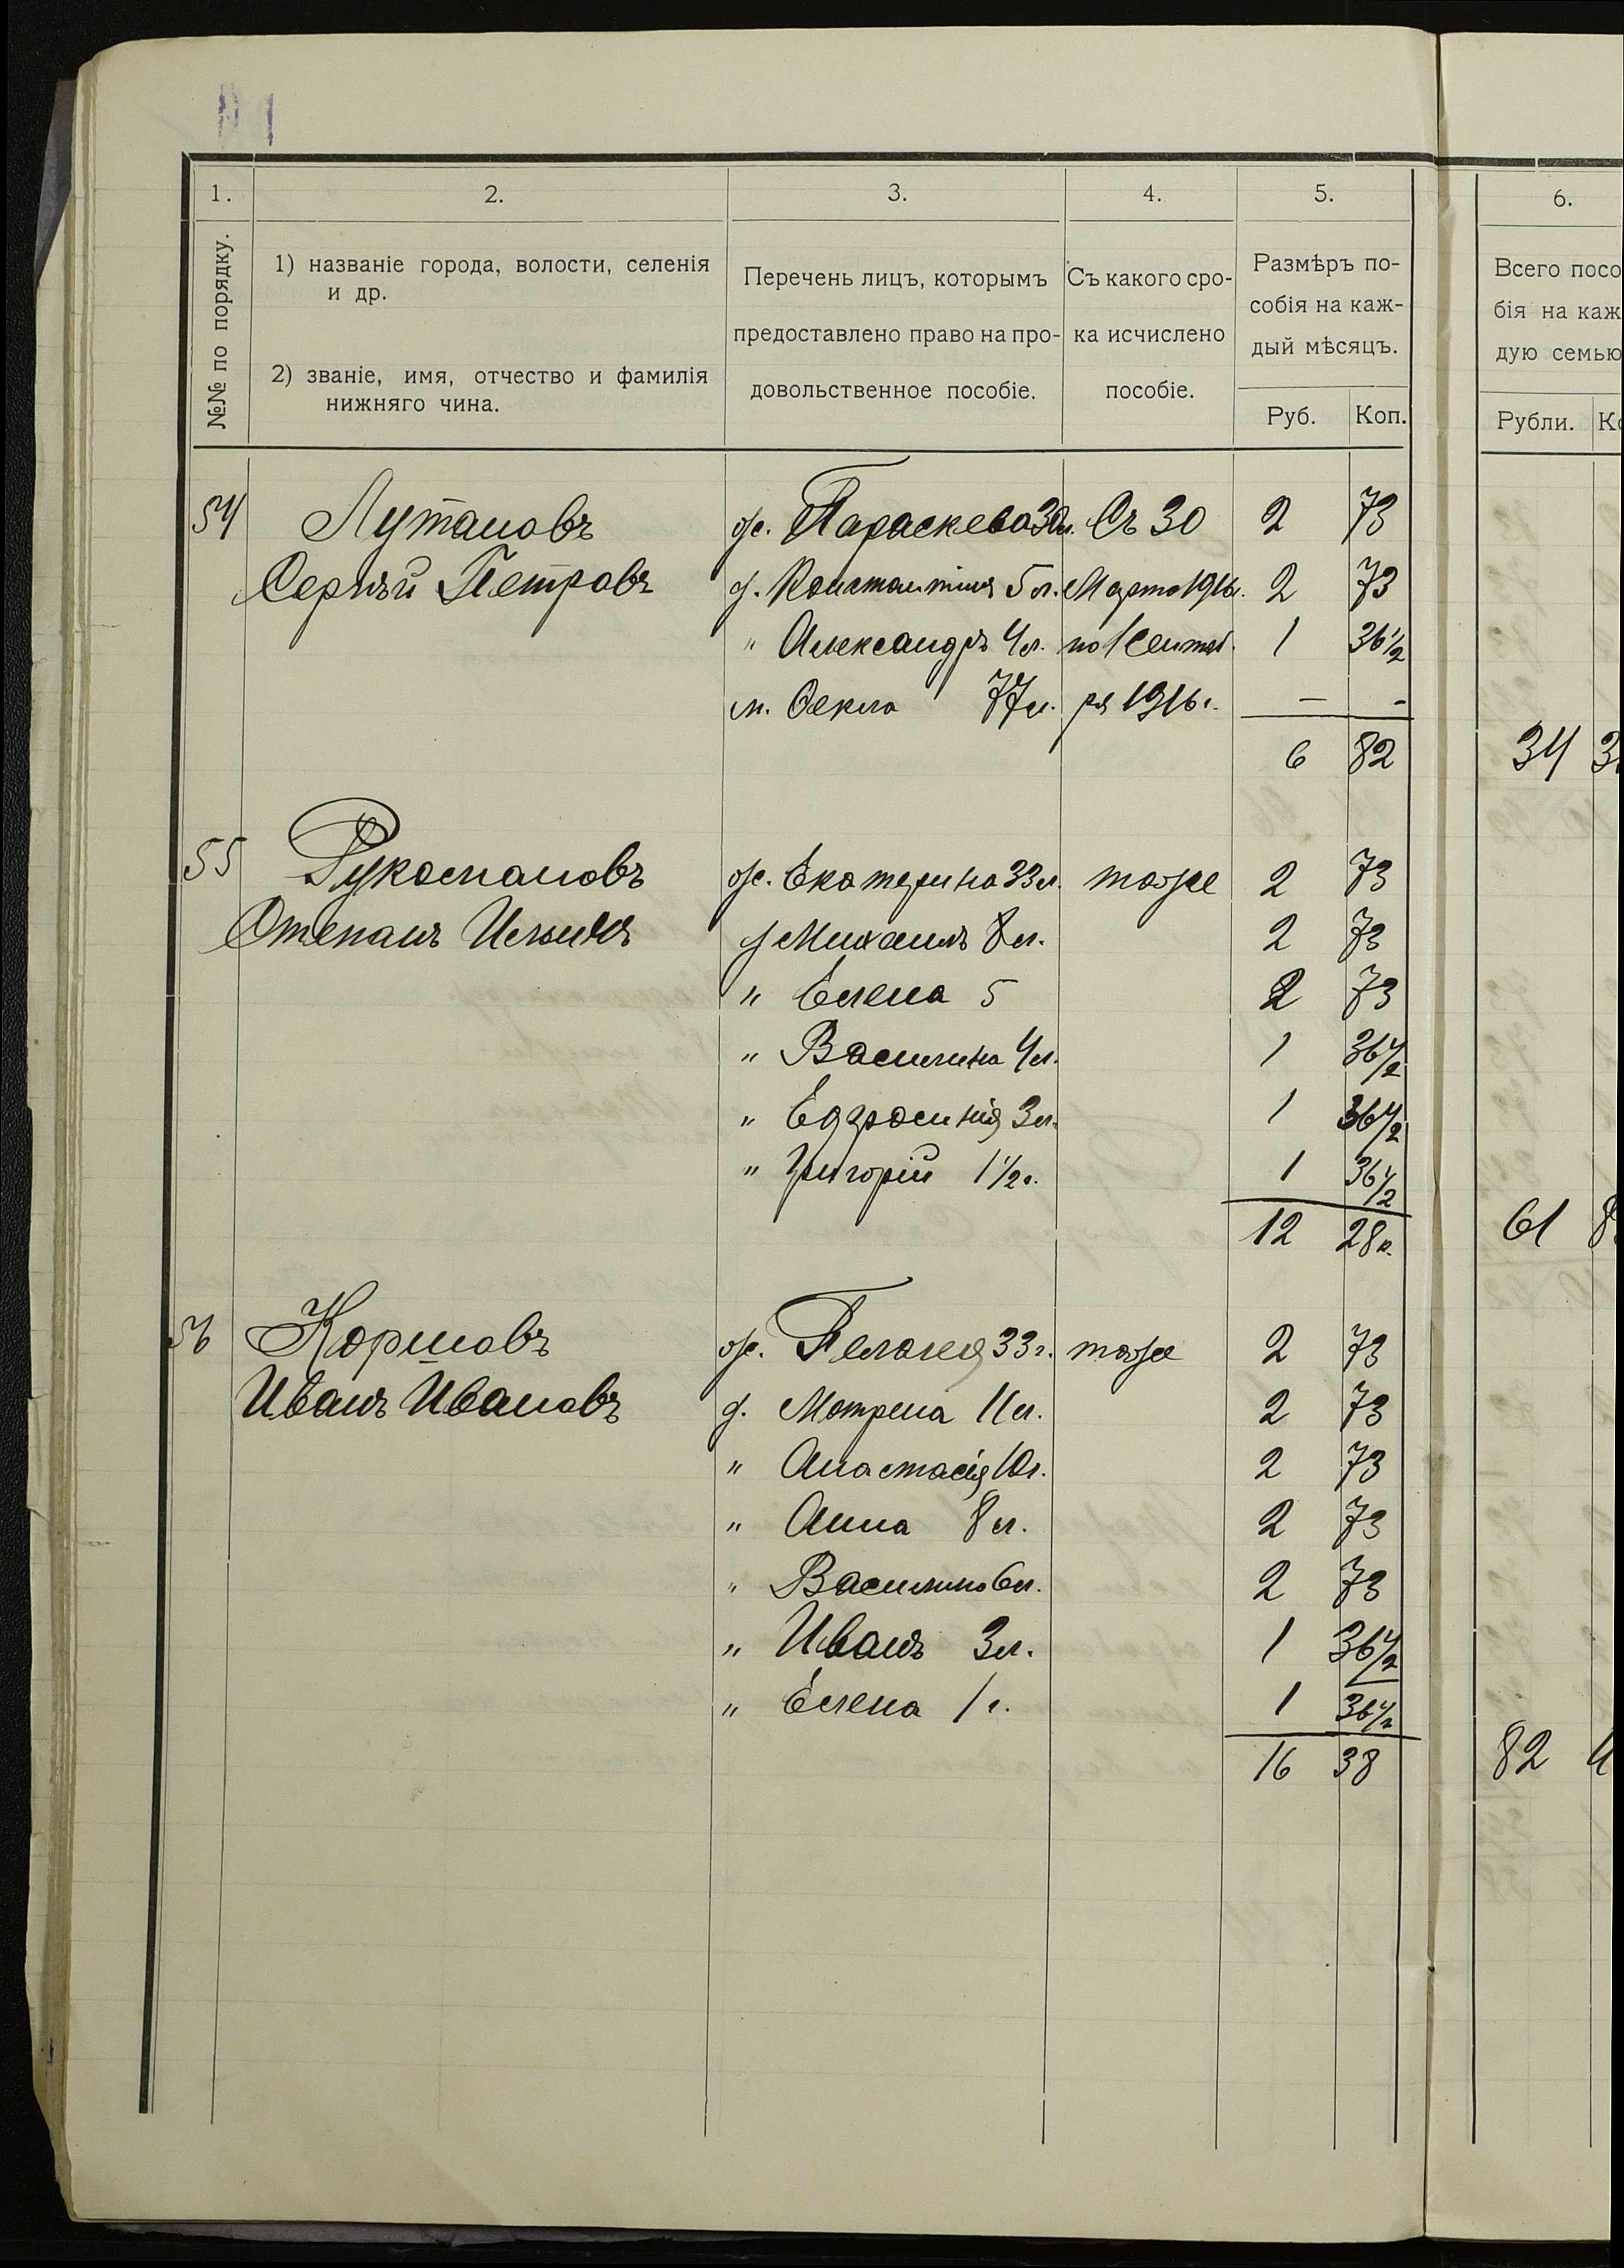 1. 2. 3. 4. 5. 6.
№№ по порядку.
1) названіе города, волости, селенія
и др.
2) званіе, имя, отчество и фамилія
нижняго чина.
Перечень лицъ, которымъ
предоставлено право на про-
довольственное пособіе.
Съ какого сро-
ка исчислено
пособіе.
Размѣръ по-
собія на каж-
дый мѣсяцъ.
Руб. Коп.
Всего посо
бія на каж
дую семью
Рубли. Ко
54 Лутановъ ж. Параскева 30л. Съ 30 2 73
Сергѣй Петровъ д. Константинъ 5 л. Марта 1916г. 2 73
" Александръ 4л. по 1 Сентяб. 1 36 1/2
м. Фекла 77л. ря 1916г. — -
6 82 34 3
55 Рукосталовъ ж. Екатерина 33л. тоже 2 73
Степанъ Ильинъ д Михаилъ 8л. 2 73
" Елена 5 2 73
" Василина 4л. 1 36 1/2
" Ефросинія 3л. 1 36 1/2
" Григорій 1 1/2г. 1 36 1/2
12 28к. 61 8
56 Коршовъ ж. Пелагея 33г. тоже 2 73
Иванъ Ивановъ д. Мотрена 11л. 2 73
" Анастасія 10г. 2 73
" Анна 8л. 2 73
" Василина 6л. 2 73
" Иванъ 3л. 1 36 1/2
" Елена 1г. 1 36 1/2
16 38 82